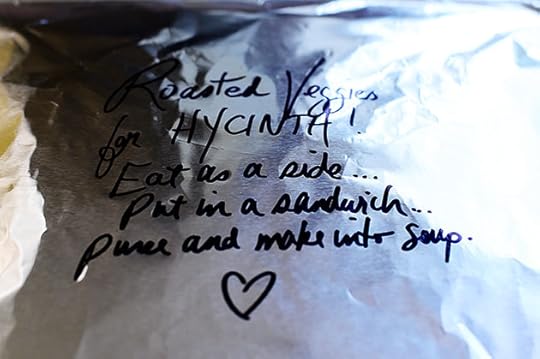 Roasted Veggies
for HYCINTH!
Eat as a side...
Put in a sandwich...
puree and make into soup.